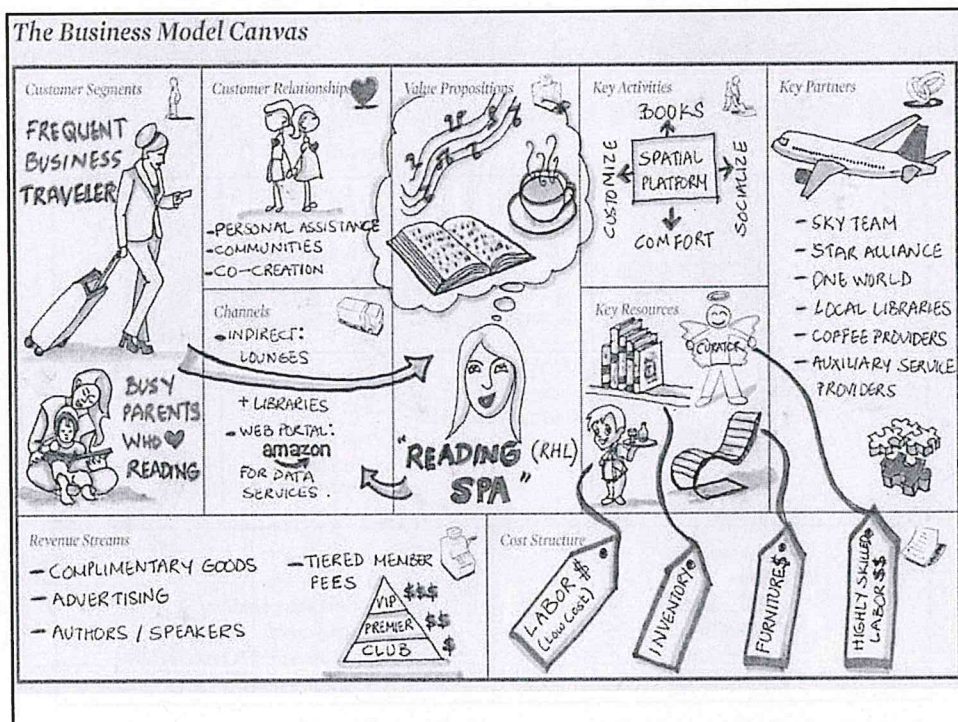 The Business Model Canvas
Customer Segments
FREQUENT
BUSINESS
TRAVELER
BUSY
PARENTS
WHO
READING
Customer Relationships
-PERSONAL ASSISTANCE
-COMMUNITIES
-CO-CREATION
Channels
-INDIRECT:
LOUNGES
+ LIBRARIES
-WEB PORTAL:
amazon
FOR DATA
SERVICES.
Value Propositions
"READING (RHL)
SPA"
Key Activities
BOOKS
CUSTOMIZE
SPATIAL
PLATFORM
SOCIALIZE
COMFORT
Key Resources
CURATOR
Key Partners
-SKY TEAM
-STAR ALLIANCE
-ONE WORLD
-LOCAL LIBRARIES
-COFFEE PROVIDERS
-AUXILIARY SERVICE
PROVIDERS
Revenue Streams
-COMPLIMENTARY GOODS
-ADVERTISING
-AUTHORS / SPEAKERS
-TIERED MEMBER
FEES
VIP $$$
PREMIER $$
CLUB $
Cost Structure
LABOR $
(LOW COST)
INVENTORY
FURNITURE $
HIGHLY SKILLED
LABOR $$